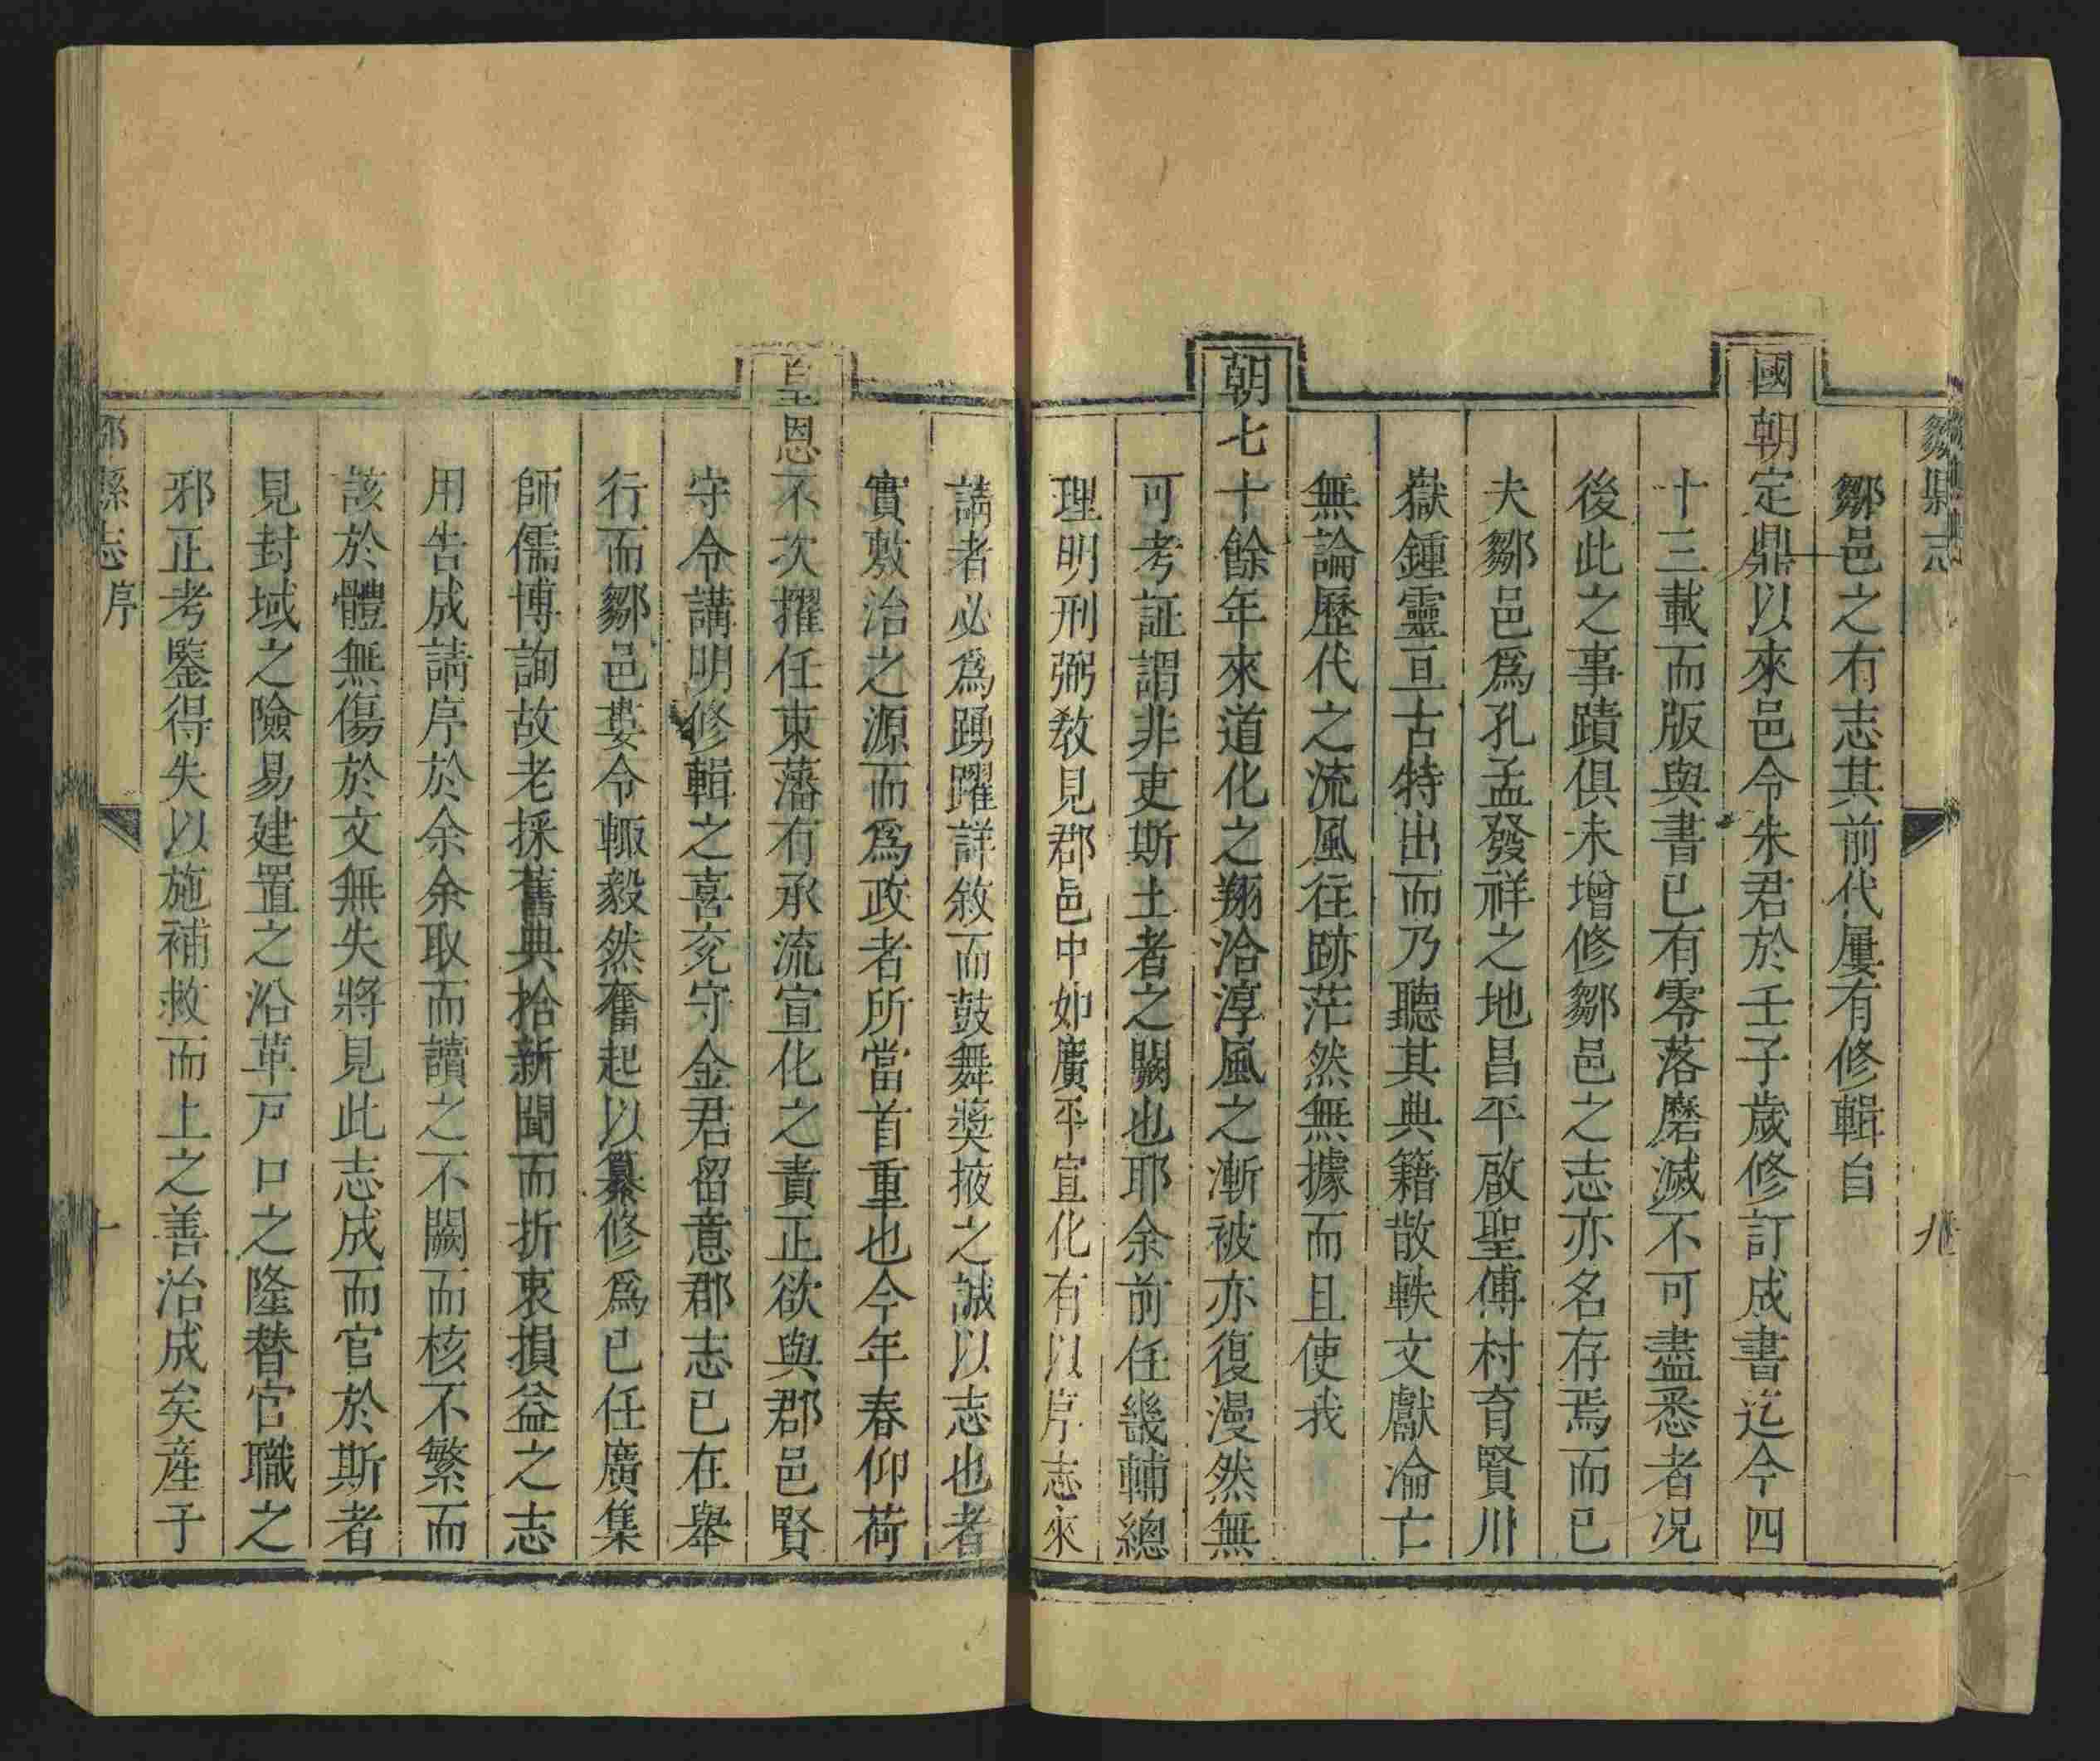 鄒縣志
九
鄒邑之有志其前代屢有修輯自
國朝定鼎以來邑令朱君於壬子歲修訂成書迄今四
十三載而版與書已有零落磨滅不可盡悉者况
後此之事蹟俱未增修鄒邑之志亦名存焉而已
夫鄒邑爲孔孟發祥之地昌平啟聖傅村育賢川
嶽鍾靈亘古特出而乃聽其典籍散軼文獻淪亡
無論歷代之流風往跡茫然無據而且使我
朝七十餘年來道化之翔洽淳風之漸被亦復漫然無
可考証謂非吏斯土者之闕也耶余前任畿輔總
理明刑弼教見郡邑中如廣平宣化有以序志來
請者必爲踴躍詳敘而鼓舞奬掖之誠以志也者
實敷治之源而爲政者所當首重也今年春仰荷
皇恩不次擢任東藩有承流宣化之責正欲與郡邑賢
守令講明修輯之喜兖守金君留意郡志已在舉
行而鄒邑婁令輙毅然奮起以纂修爲已任廣集
師儒博詢故老採舊典拾新聞而折衷損益之志
用告成請序於余余取而讀之不闕而核不繁而
該於體無傷於文無失將見此志成而官於斯者
見封域之險易建置之沿革戸口之隆替官職之
邪正考鑒得失以施補救而上之善治成矣産于
鄒縣志
序
十